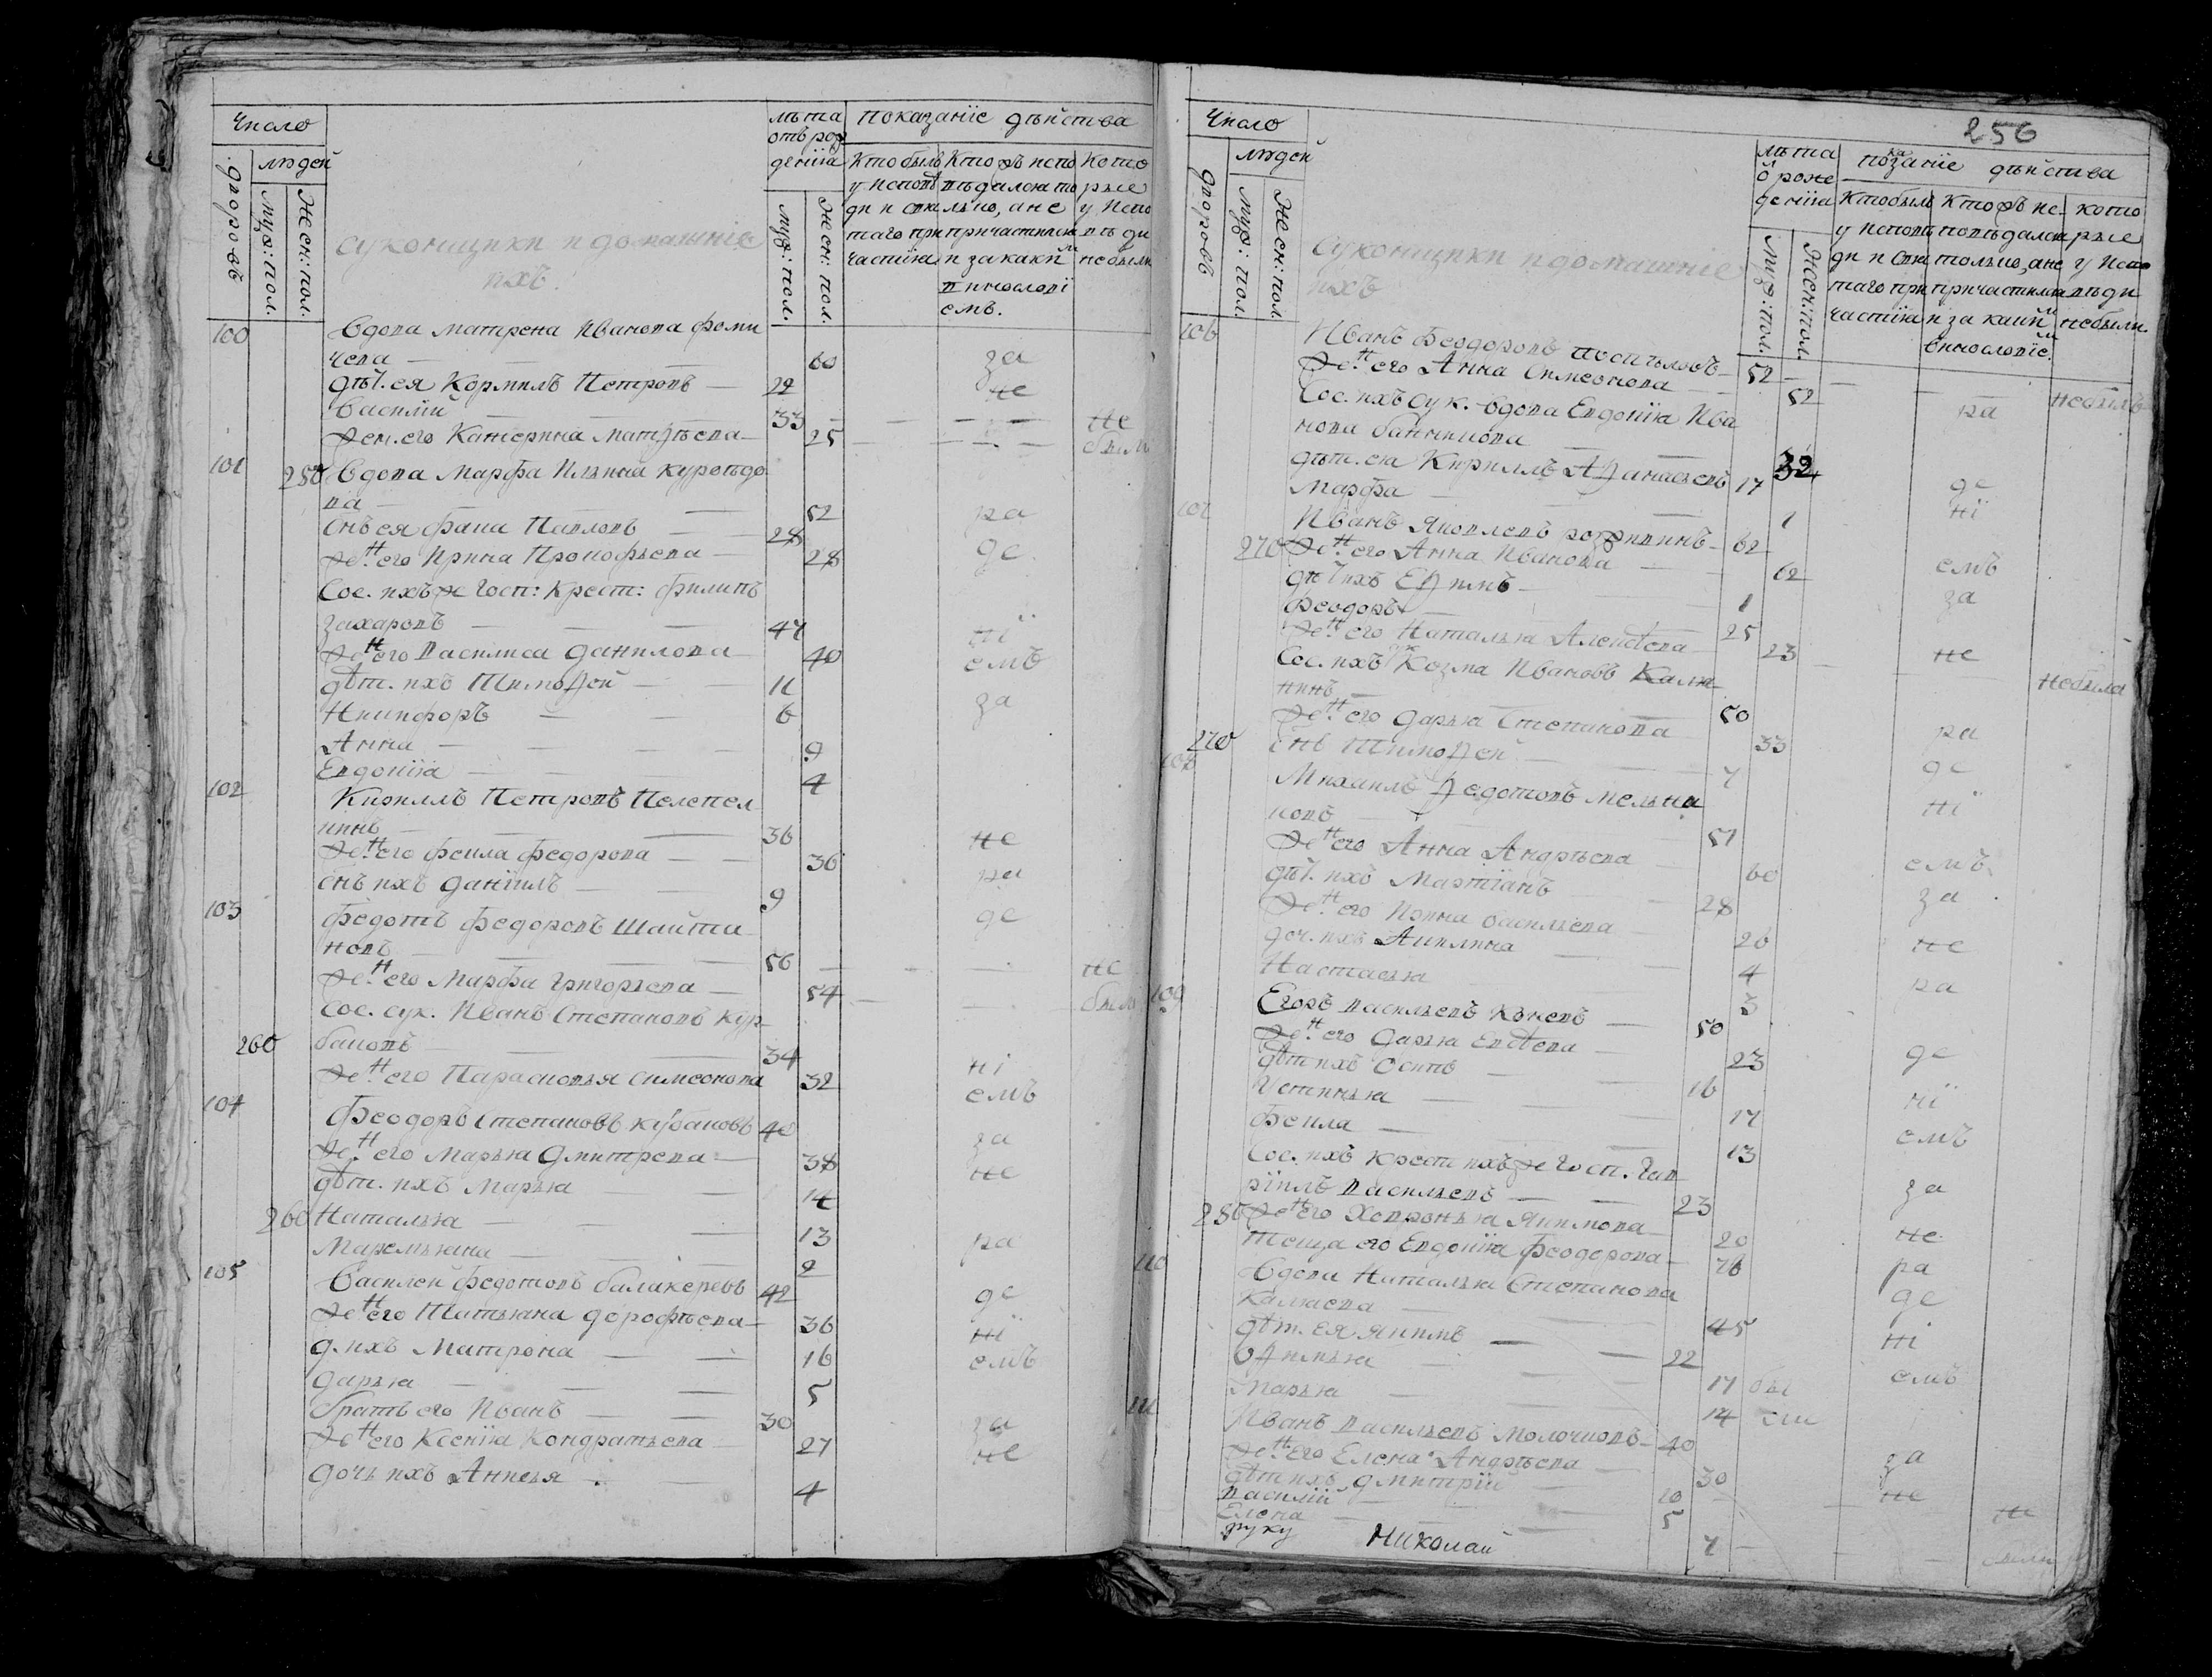 Число
людей
дворовъ
муж: пол.
женс: пол.
суконщики и домашніе
ихъ.
лѣта
отъ рож
денія
муж: пол.
женс: пол.
показаніе дѣйства
Кто былъ
у исповѣ
ди и свя
таго при
частия
Кто исповѣдался то
лько, а не
причастился
и за какимъ
винословіемъ.
Которые
у Испо
вѣди
не были
100
вдова матрена Иванова фоми
чева — 60 за
дѣт. ея Кормилъ Петровъ — 22 не
василій — 33
жен. его Катерина матвѣева — 25 не были
101
250 вдова марфа Ильина куроѣдо
ва — 52 ра
снъ ея фана Павловъ — 28
жен его Ирина Прокофьева — 28 де
Сос. ихъ же Госп: крест: филипъ
захаровъ — 47 ні
жен его Василиса данилова — 40 емъ
дѣт. ихъ Тимофей — 11
Никифоръ — 6 за
Анна — 9
Евдокія — 4
102
Кирилъ Петровъ Пелепел
кинъ — 36 не
жен его фекла федорова — 36
снъ ихъ даніилъ — 9 ра
103
федотъ федоровъ Шайта
новъ — 56 не
жен его Марфа григорьева — 54 были
Сос. сук. Иванъ Степановъ кур
бановъ — 34
260
жен его Парасковья симеонова 32 ні
104
феодоръ степановъ кубановъ 40 емъ
жен его Марья дмитрева — 38 за
дѣт. ихъ Марья — 14 не
260 Наталья — 13
Маремьяна — 2 ра
105
василей федотовъ балакеревъ 42 де
жен его Татьяна дорофѣева — 36 ні
д. ихъ Матрона — 16 емъ
дарья — 5
братъ его Иванъ — 30 за
жен его Ксенія Кондратьева 27 не
дочь ихъ Анисья — 4
256
Число
людей
дворовъ
муж: пол.
женс: пол.
суконщики и домашніе
ихъ
лѣта
о роже
денія
муж: пол.
женс: пол.
показаніе дѣйства
Кто былъ
у исповѣ
ди и свя
таго при
частия
Кто исповѣдался
только, а не
причастился
и за какимъ
винословіе.
которые
у Испо
вѣди
не были
106
Иванъ Феодоровъ Постъловъ — 52 небылъ
жен его Анна Симеонова — 52 ра
Сос. ихъ сук. вдова Евдокія Ива
нова банникова — 32
дѣт. ея Кирилъ Афанасьевъ 17 де
марфа — 1 ні
107
Иванъ Яковлевъ — 62
270 жен его Анна Иванова — 62 емъ
дѣт ихъ Ефимъ — 1 за
Феодоръ — 25
жен его Наталья Алексѣева — 23 не
Сос. ихъ Козма Ивановъ Кали
нинъ — 50 небыла
жен его дарья Степанова — 33 ра
270
снъ Тимофей — 7 де
108
Михаилъ Федотовъ мельни
ковъ — 51 ні
жен его Анна Андрѣева — 60 емъ
дѣт. ихъ Мартіанъ — 28
жен его Ирина васильева — 26 за
доч. ихъ Акилина — 4 не
Настасья — 3 ра
109
Егоръ васильевъ Коневъ — 50
жен его дарья — 23 де
дѣт ихъ Осипъ — 16
Устинья — 17 ні
Фекла — 13 емъ
Сос. ихъ крест ихъ же Госп. Гав
ріилъ васильевъ — 23 за
280 жен его Хавронья Якимова — 20 не
теща его Евдокія Феодорова — 76 ра
110
вдова Наталья Степанова
Калмаева — 45 де
дѣт. ея Якимъ — 22 ні
Ефимья — 17 емъ
марья — 14
111
Иванъ васильевъ молочковъ — 40
жен его Елена Андрѣева — 30 за
дѣт ихъ дмитрій — 10 не
василій — 5
Елена — 7 не были
руку Николай